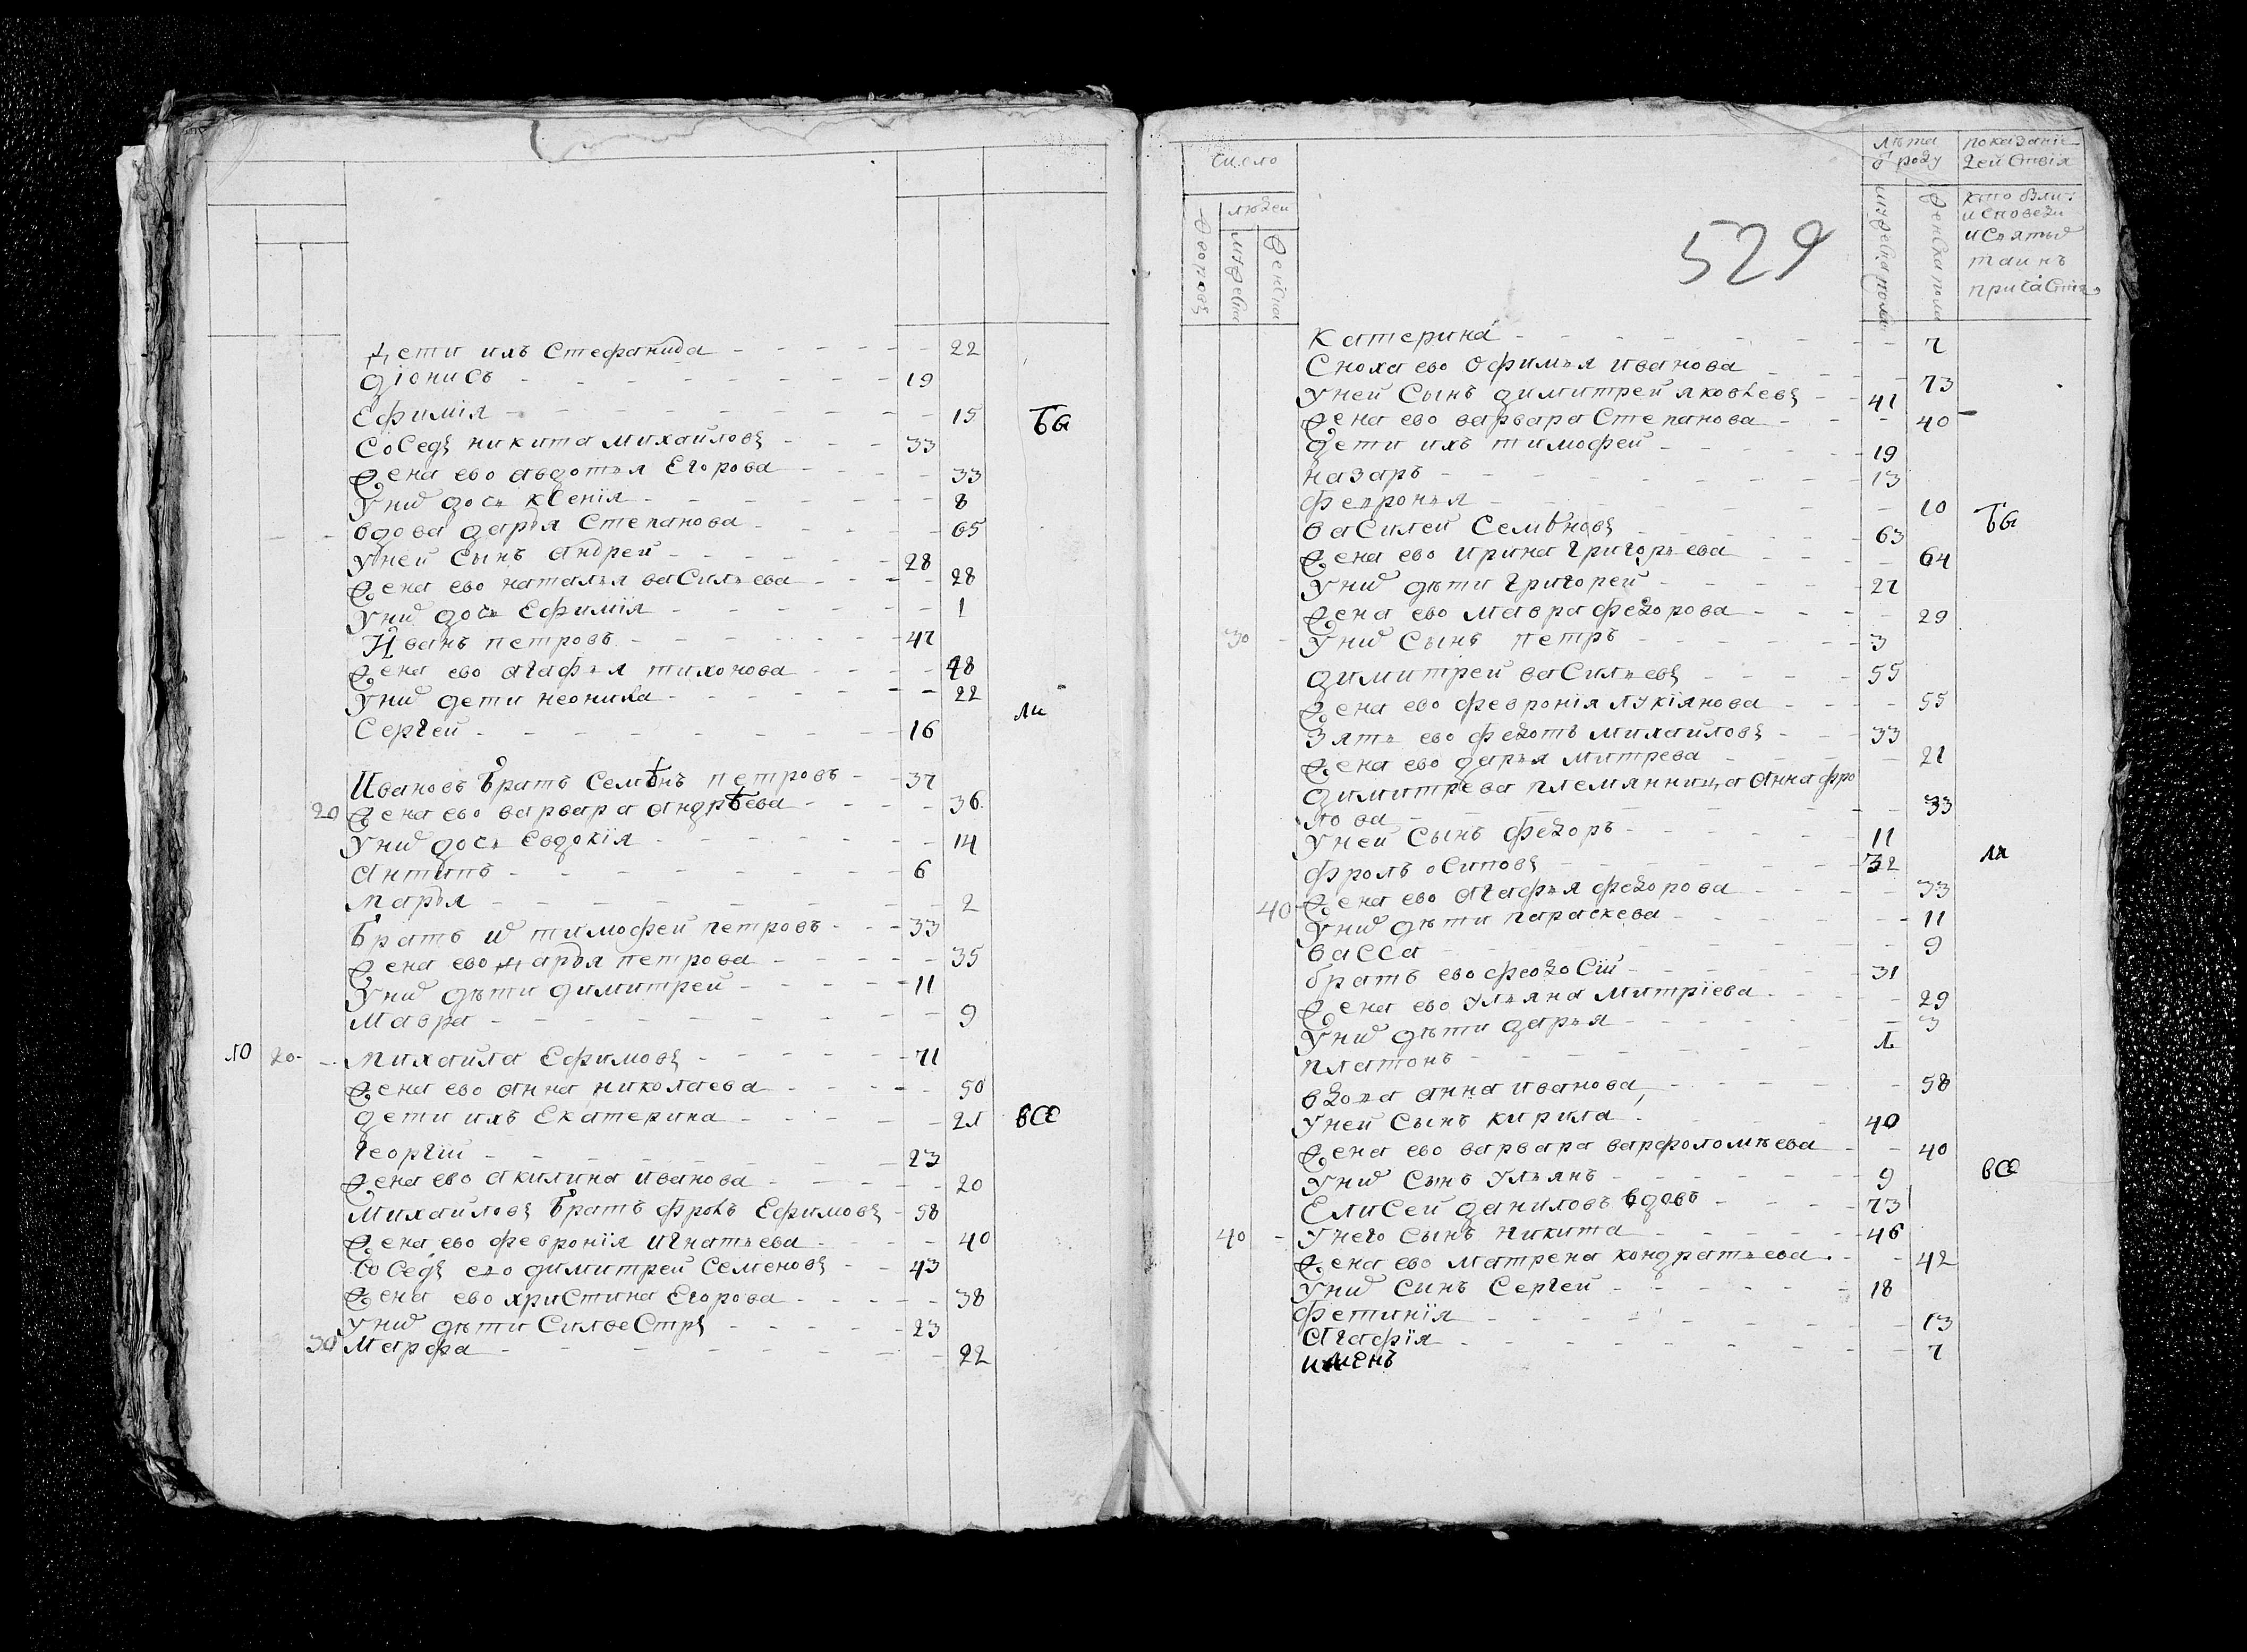 Дети ихъ Стефанида - - - - - 22
Діонисъ - - - - - 19
Ефимія - - - - - 15
Бы
Соседъ никита михайловъ - - - 33
жена ево авдотья Егорова - - - 33
У нихъ дочь ксенія - - - - - 8
вдова дарья Степанова - - - - 65
У ней Сынъ андрей - - - - - 28
жена ево наталья васильева - - - 28
У нихъ дочь Ефимїя - - - - - 1
Иванъ петровъ - - - - - 47
жена ево агафья тихонова - - - 48
У нихъ дети неонила - - - - - 22
ли
Сергей - - - - - 16
Ивановъ братъ Семѣнъ петровъ - - 37
20 жена ево варвара андрѣева - - - 36
У нихъ дочь Евдокїя - - - - - 14
антипъ - - - - - 6
марья - - - - - 2
братъ и тимофей петровъ - - - 33
жена ево дарья петрова - - - - 35
У нихъ дѣти димитрей - - - - 11
мавра - - - - - 9
10 20 - - михаила Ефимовъ - - - - 71
жена ево анна николаева - - - - 50
дети ихъ Екатерина - - - - 21
все
Георгій - - - - - 23
жена ево акилина иванова - - - - 20
михайловъ братъ фролъ Ефимовъ - 58
жена ево февронїя игнатьева - - - 40
Соседъ ево димитрей Семеновъ - - 43
жена ево христина Егорова - - - - 38
У нихъ дѣти Силвестръ - - - - 23
30 марфа - - - - - 22
число
лѣта
от роду
показаніе
действія
529
дворовъ
людей
мужеска
женска
мужеска пола
женска пола
кто были
исповеди
и святыхъ
таинъ
причастія
катерина - - - - - 7
Сноха ево офимья иванова - - - 73
У ней Сынъ димитрей яковлевъ - - 41
жена ево варвара Степанова - - - 40
Дети ихъ тимофей - - - - - 19
назаръ - - - - - 13
февронья - - - - - 10
Бы
василей Семѣновъ - - - - - 63
жена ево ирина григорьева - - - 64
У нихъ дѣти григорей - - - - 27
жена ево мавра федорова - - - 29
30 - У нихъ Сынъ петръ - - - - 3
димитрей васильевъ - - - - 55
жена ево февронїя лукїянова - - - 55
зять ево федотъ михайловъ - - - 33
жена ево дарья митрева - - - - 21
димитрева племянница анна фро
лова - - - - - 33
У ней Сынъ федоръ - - - - 11
ли
фролъ осиповъ - - - - - 32
40 - жена ево агафья федорова - - - 33
У нихъ дѣти параскева - - - - 11
васса - - - - - 9
братъ ево феодосїй - - - - 31
жена ево ульяна митрїева - - - 29
У нихъ дѣти дарья - - - - - 3
платонъ - - - - -
вдова анна иванова - - - - 58
У ней Сынъ кирила - - - - 40
жена ево варвара варфоломѣева - - 40
все
У нихъ Сынъ ульянъ - - - - 9
Елисей даниловъ вдовъ - - - 73
40 - У него сынъ никита - - - - 46
жена ево матрена кондратьева - - 42
У нихъ Сынъ Сергей - - - - 18
фетинїя - - - - - 13
агафїя - - - - - 7